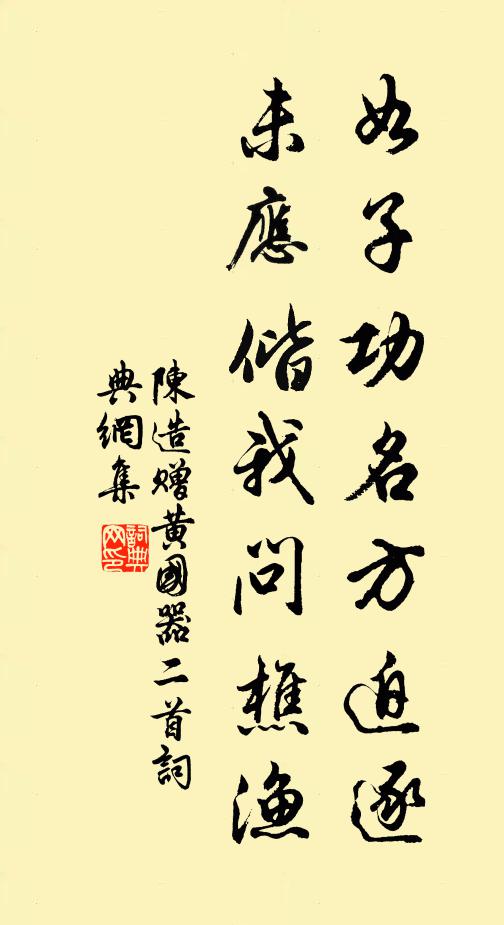 如子功名方追逐
未應偕我問樵漁
陳造贈黃國器二首詞
典網集
詞典網印